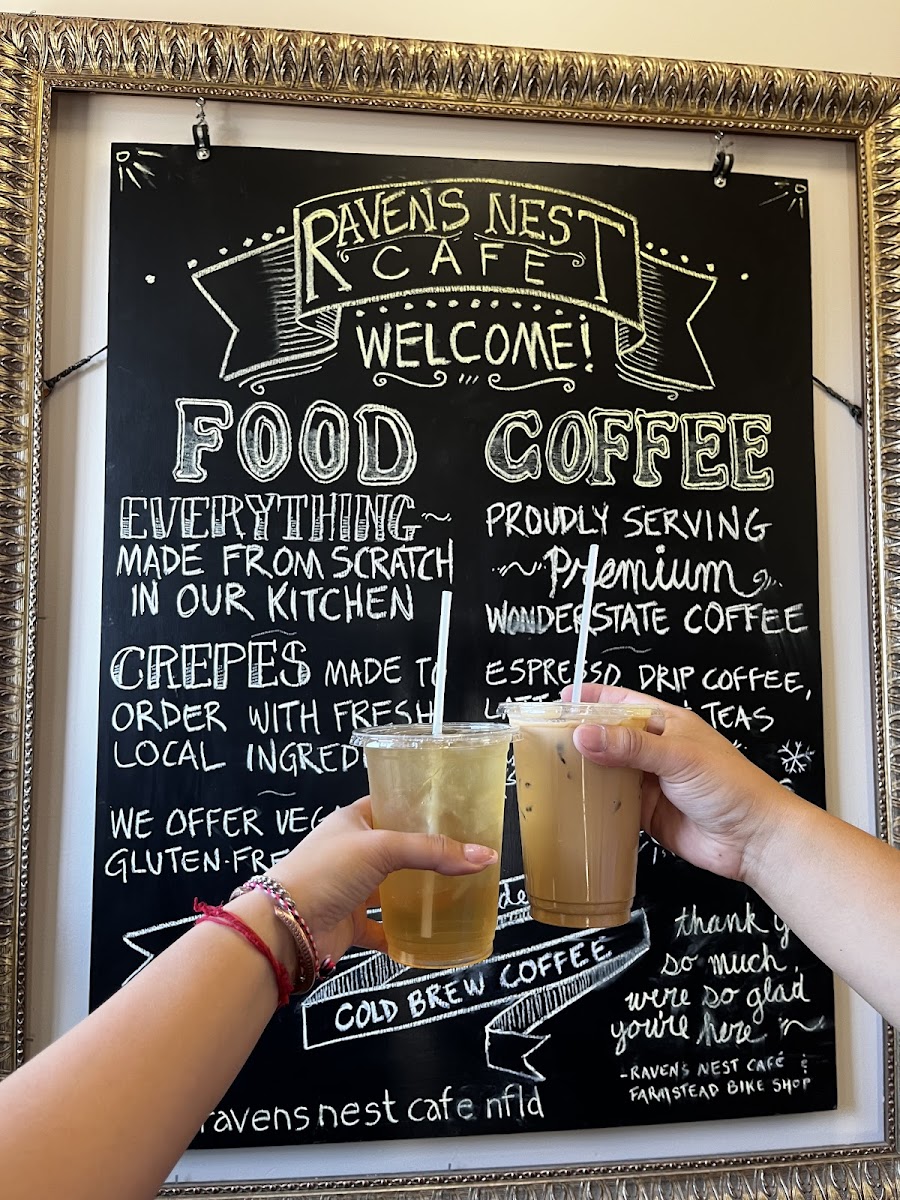 RAVENS NEST
CAFE
WELCOME!
FOOD
EVERYTHING
MADE FROM SCRATCH
IN OUR KITCHEN
CREPES MADE TO
ORDER WITH FRESH
LOCAL
WE OFFER
GLUTEN-FRE
COFFEE
PROUDLY SERVING
Premium
WONDERSTATE COFFEE
ESPRESSO, DRIP COFFEE,
TEAS
COLD BREW COFFEE
thank
so much,
we're so glad
you're here
-RAVENS NEST CAFÉ &
FARMSTEAD BIKE SHOP
ravens nest cafe nfld